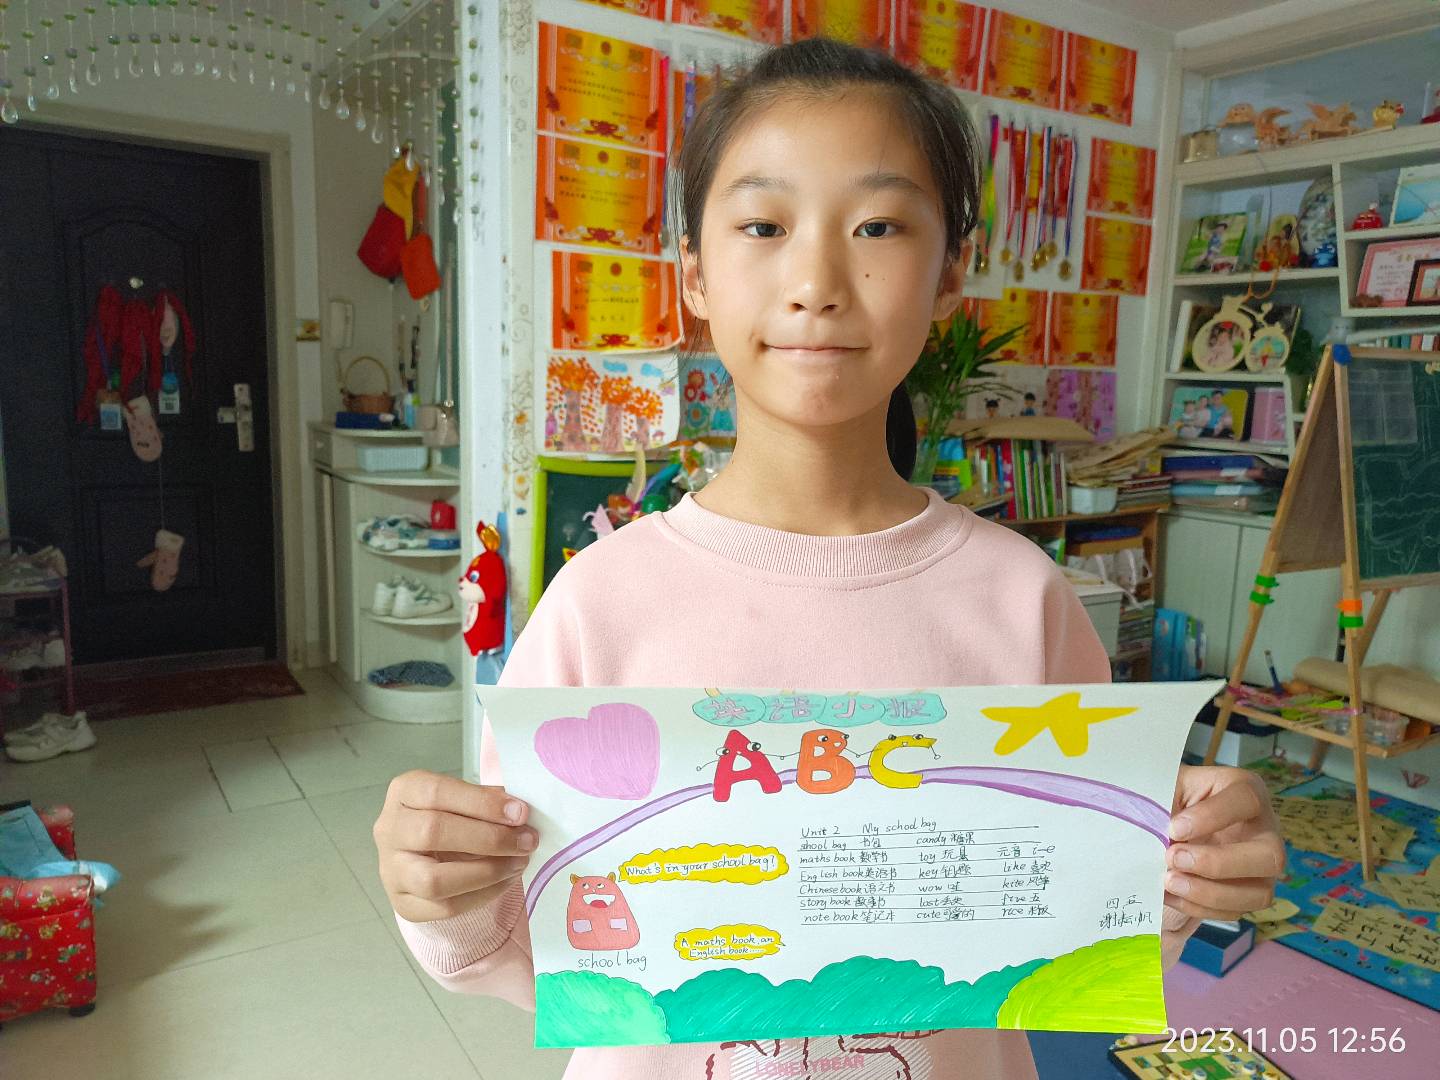 英语小报
ABC
Unit 2 My school bag
shool bag 书包 candy 糖果
maths book 数学书 toy 玩具 元音 i-e
English book 英语书 key 钥匙 like 喜欢
Chinese book 语文书 wow 哇 kite 风筝
story book 故事书 lost 丢失 five 五
note book 笔记本 cute 可爱的 rice 米饭
What's in your school bag?
A maths book, an
English book......
school bag
四五
LONELYBEAR
2023.11.05 12:56